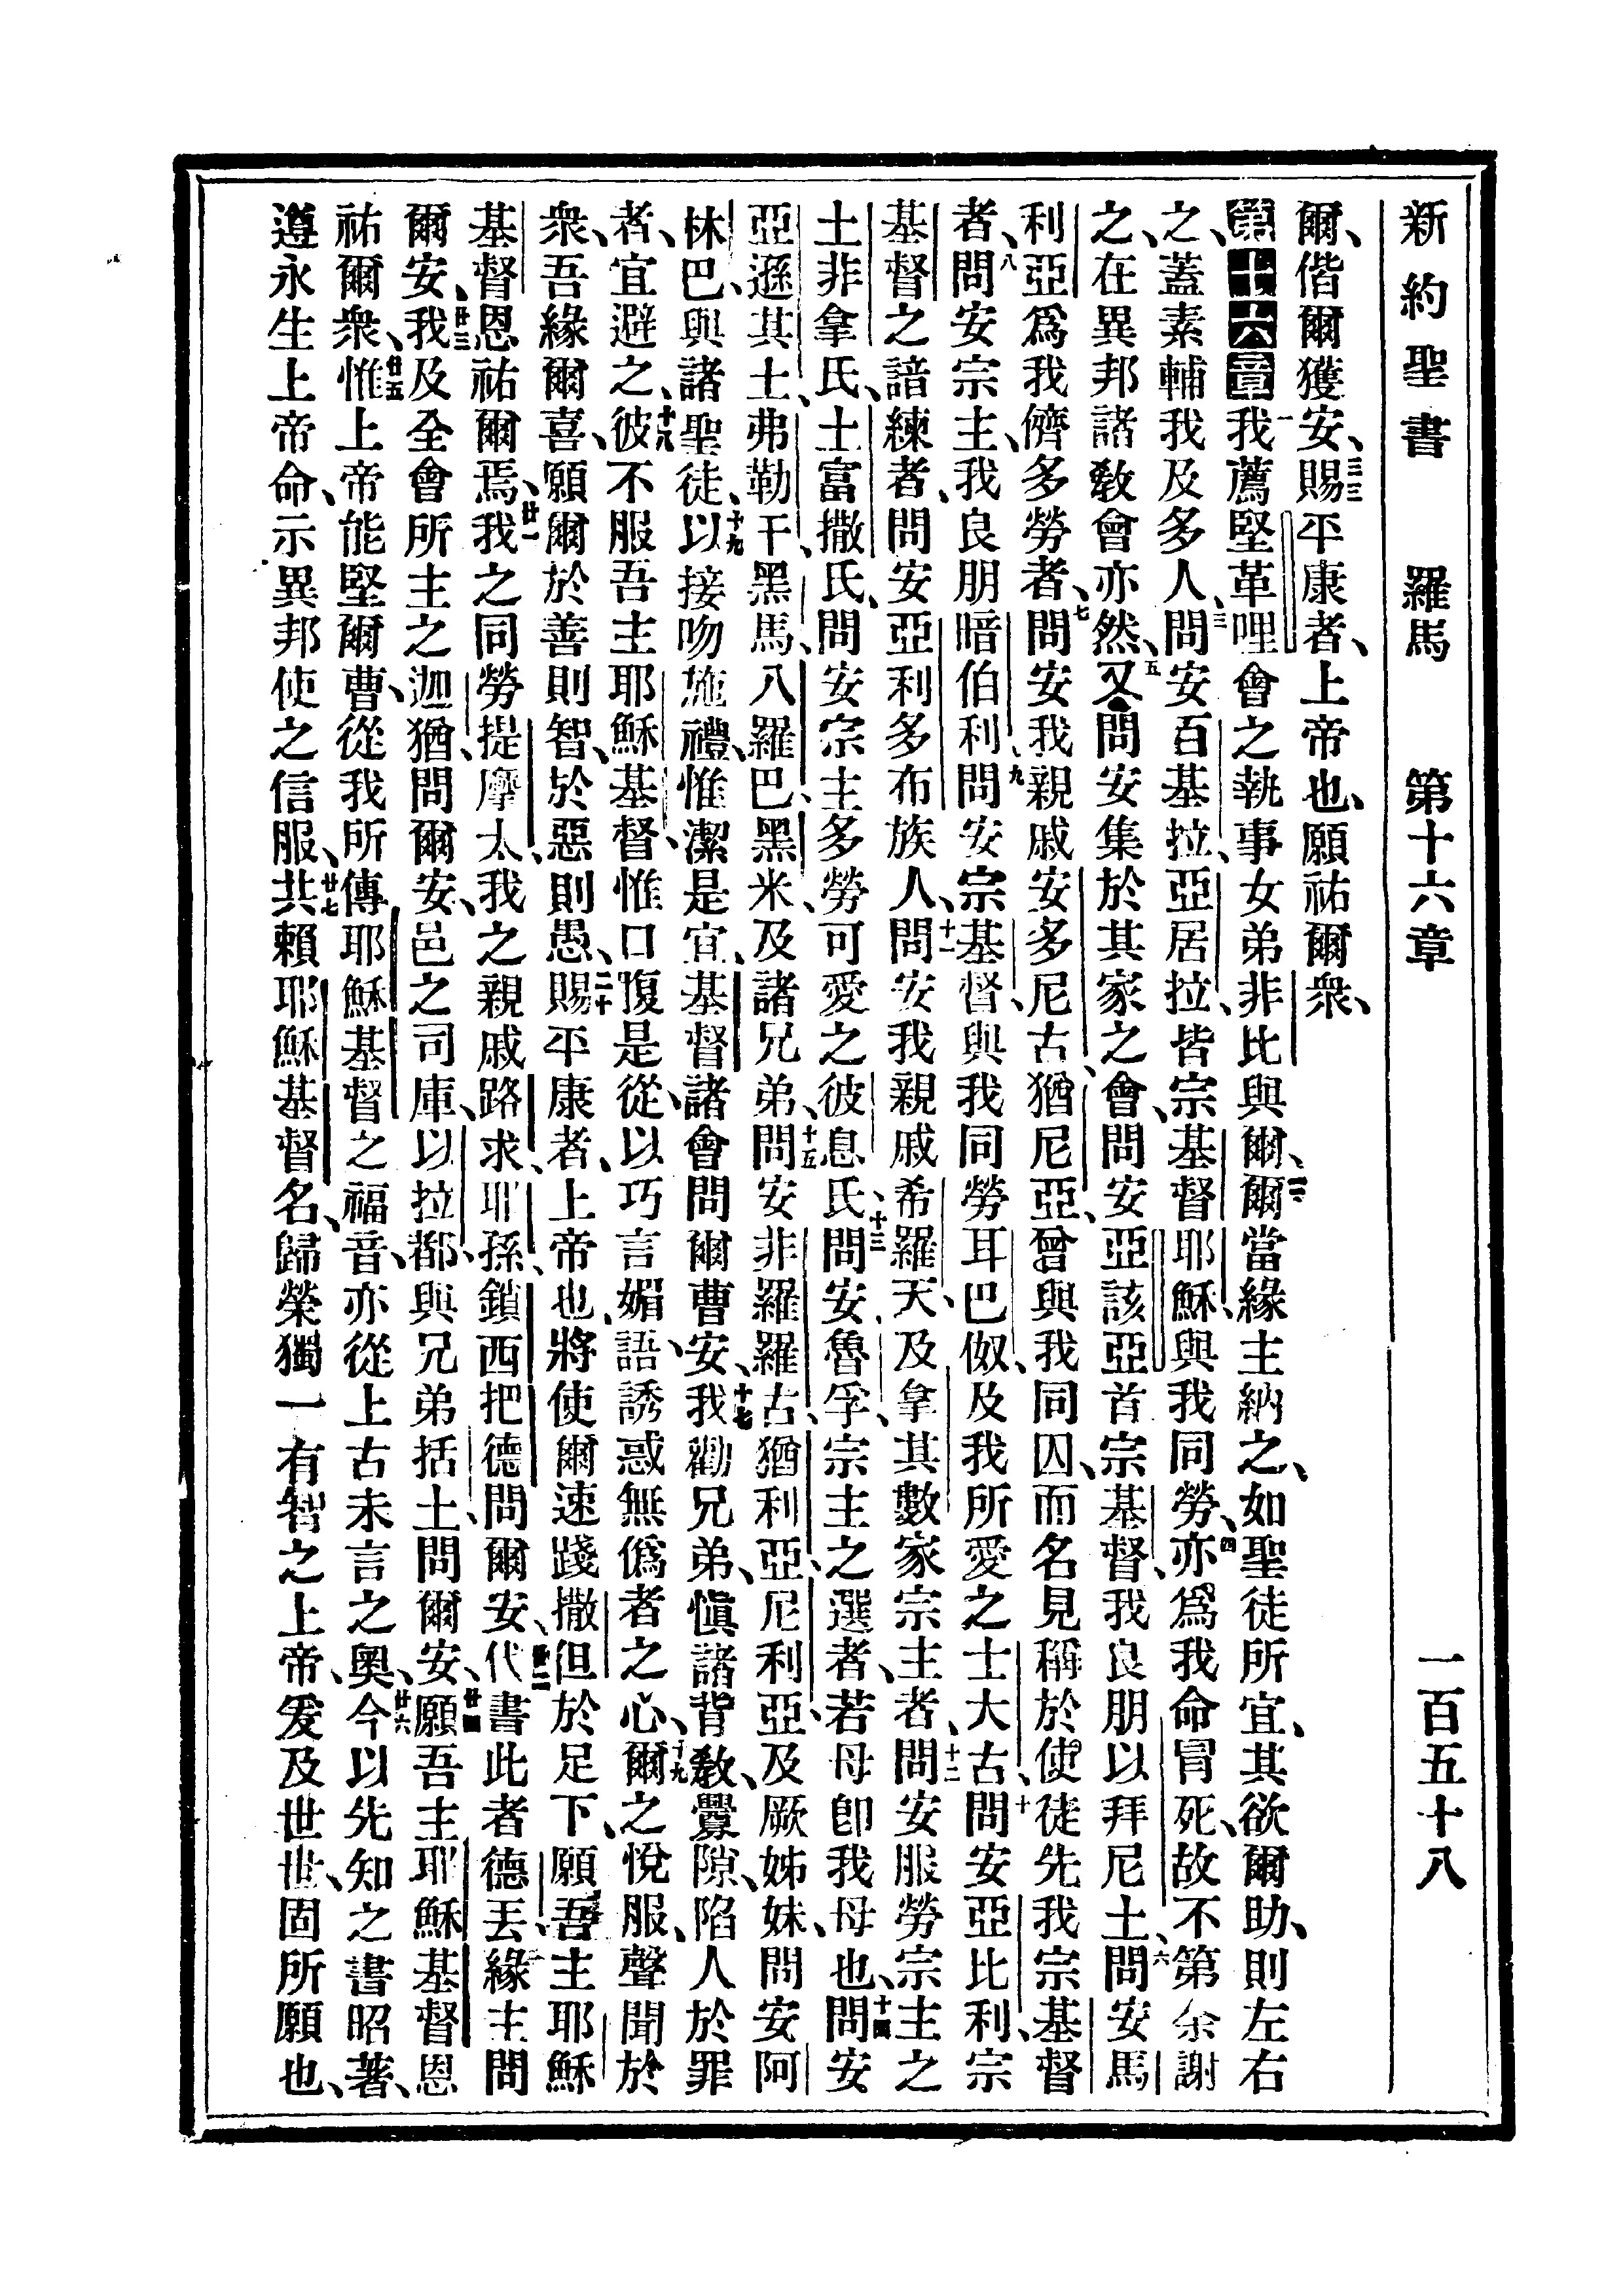 新約聖書 羅馬 第十六章 一百五十八
爾、偕爾獲安、三三賜平康者、上帝也、願祐爾衆、
第十六章一我薦堅革哩會之執事女弟非比與爾、二爾當緣主納之、如聖徒所宜、其欲爾助、則左右
之、蓋素輔我及多人、三問安百基拉、亞居拉、皆宗基督耶穌、與我同勞、四亦爲我命冒死、故不第余謝
之、在異邦諸教會亦然、五又問安集於其家之會、問安亞該亞首宗基督、我良朋以拜尼土、六問安馬
利亞爲我儕多勞者、七問安我親戚安多尼古、猶尼亞、曾與我同囚、而名見稱於使徒、先我宗基督
者、八問安宗主、我良朋暗伯利、九問安宗基督、與我同勞耳巴伮、及我所愛之士大古、十問安亞比利、宗
基督之諳練者、問安亞利多布族人、十一問安我親戚希羅天、及拿其數家宗主者、十二問安服勞宗主之
土非拿氏、士富撒氏、問安宗主多勞可愛之彼息氏、十三問安魯孚、宗主之選者、若母卽我母也、十四問安
亞遜其土、弗勒干、黑馬、八羅巴、黑米、及諸兄弟、十五問安非羅羅古、猶利亞、尼利亞、及厥姊妹、問安阿
林巴、與諸聖徒、十九以接吻施禮、惟潔是宜、基督諸會問爾曹安、十七我勸兄弟、愼諸背教、釁隙、陷人於罪
者、宜避之、十八彼不服吾主耶穌基督、惟口腹是從、以巧言媚語、誘惑無僞者之心、十九爾之悅服、聲聞於
衆、吾緣爾喜、願爾於善則智、於惡則愚、二十賜平康者、上帝也、將使爾速踐撒但於足下、願吾主耶穌
基督恩祐爾焉、廿一我之同勞提摩太、我之親戚路求、耶孫、鎖西把德問爾安、廿二代書此者德丟、緣主問
爾安、廿三我及全會所主之迦猶、問爾安、邑之司庫、以拉都、與兄弟括土、問爾安、廿四願吾主耶穌基督恩
祐爾衆、廿五惟上帝能堅爾曹、從我所傳耶穌基督之福音、亦從上古未言之奧、廿六今以先知之書昭著、
遵永生上帝命、示異邦使之信服、廿七共賴耶穌基督名、歸榮獨一有智之上帝、爰及世世、固所願也、